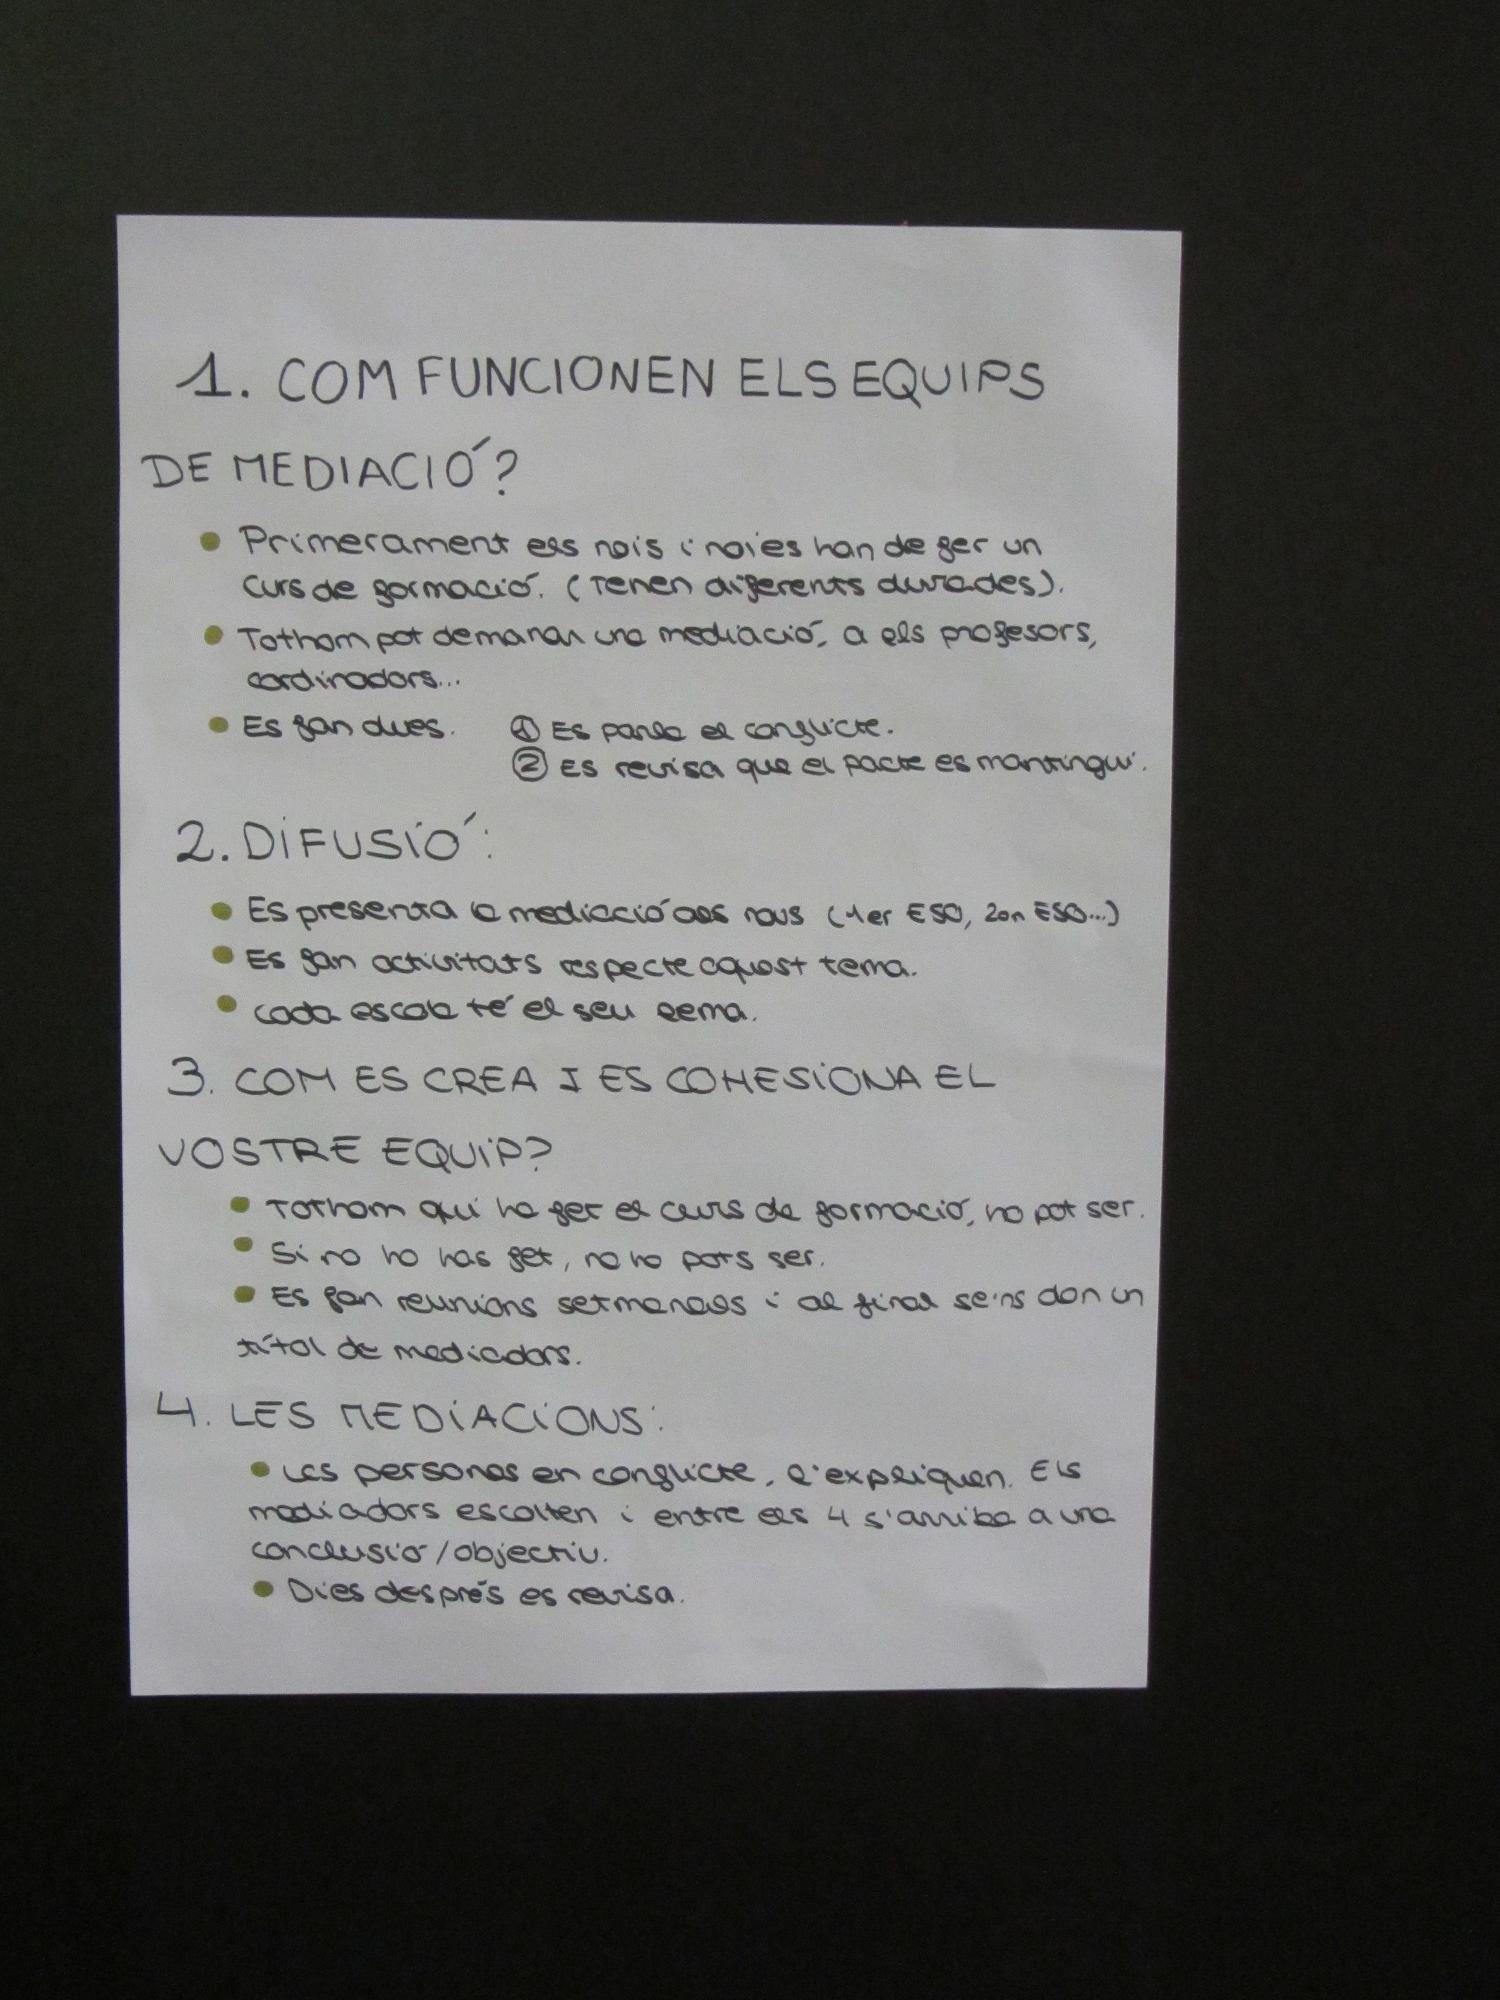 1. COM FUNCIONEN ELS EQUIPS
DE MEDIACIÓ?
• Primerament els nois i noies han de fer un
curs de formació. (Tenen diferents durades).
• Tothom pot demanar una mediació, a els profesors,
cordinadors...
• Es fan dues. ① Es parla el conflicte.
② Es revisa que el pacte es mantingui.
2. DIFUSIÓ:
• Es presenta la mediació als nous (1er ESO, 2on ESO...)
• Es fan activitats respecte aquest tema.
• Cada escola té el seu lema.
3. COM ES CREA I ES COHESIONA EL
VOSTRE EQUIP?
• Tothom qui ha fet el curs de formació, ho pot ser.
• Si no ho has fet, no ho pots ser.
• Es fan reunions setmanals i al final se'ns don un
títol de mediadors.
4. LES MEDIACIONS:
• Les persones en conflicte, l'expliquen. Els
mediadors escolten i entre els 4 s'arriba a una
conclusió/objectiu.
• Dies després es revisa.